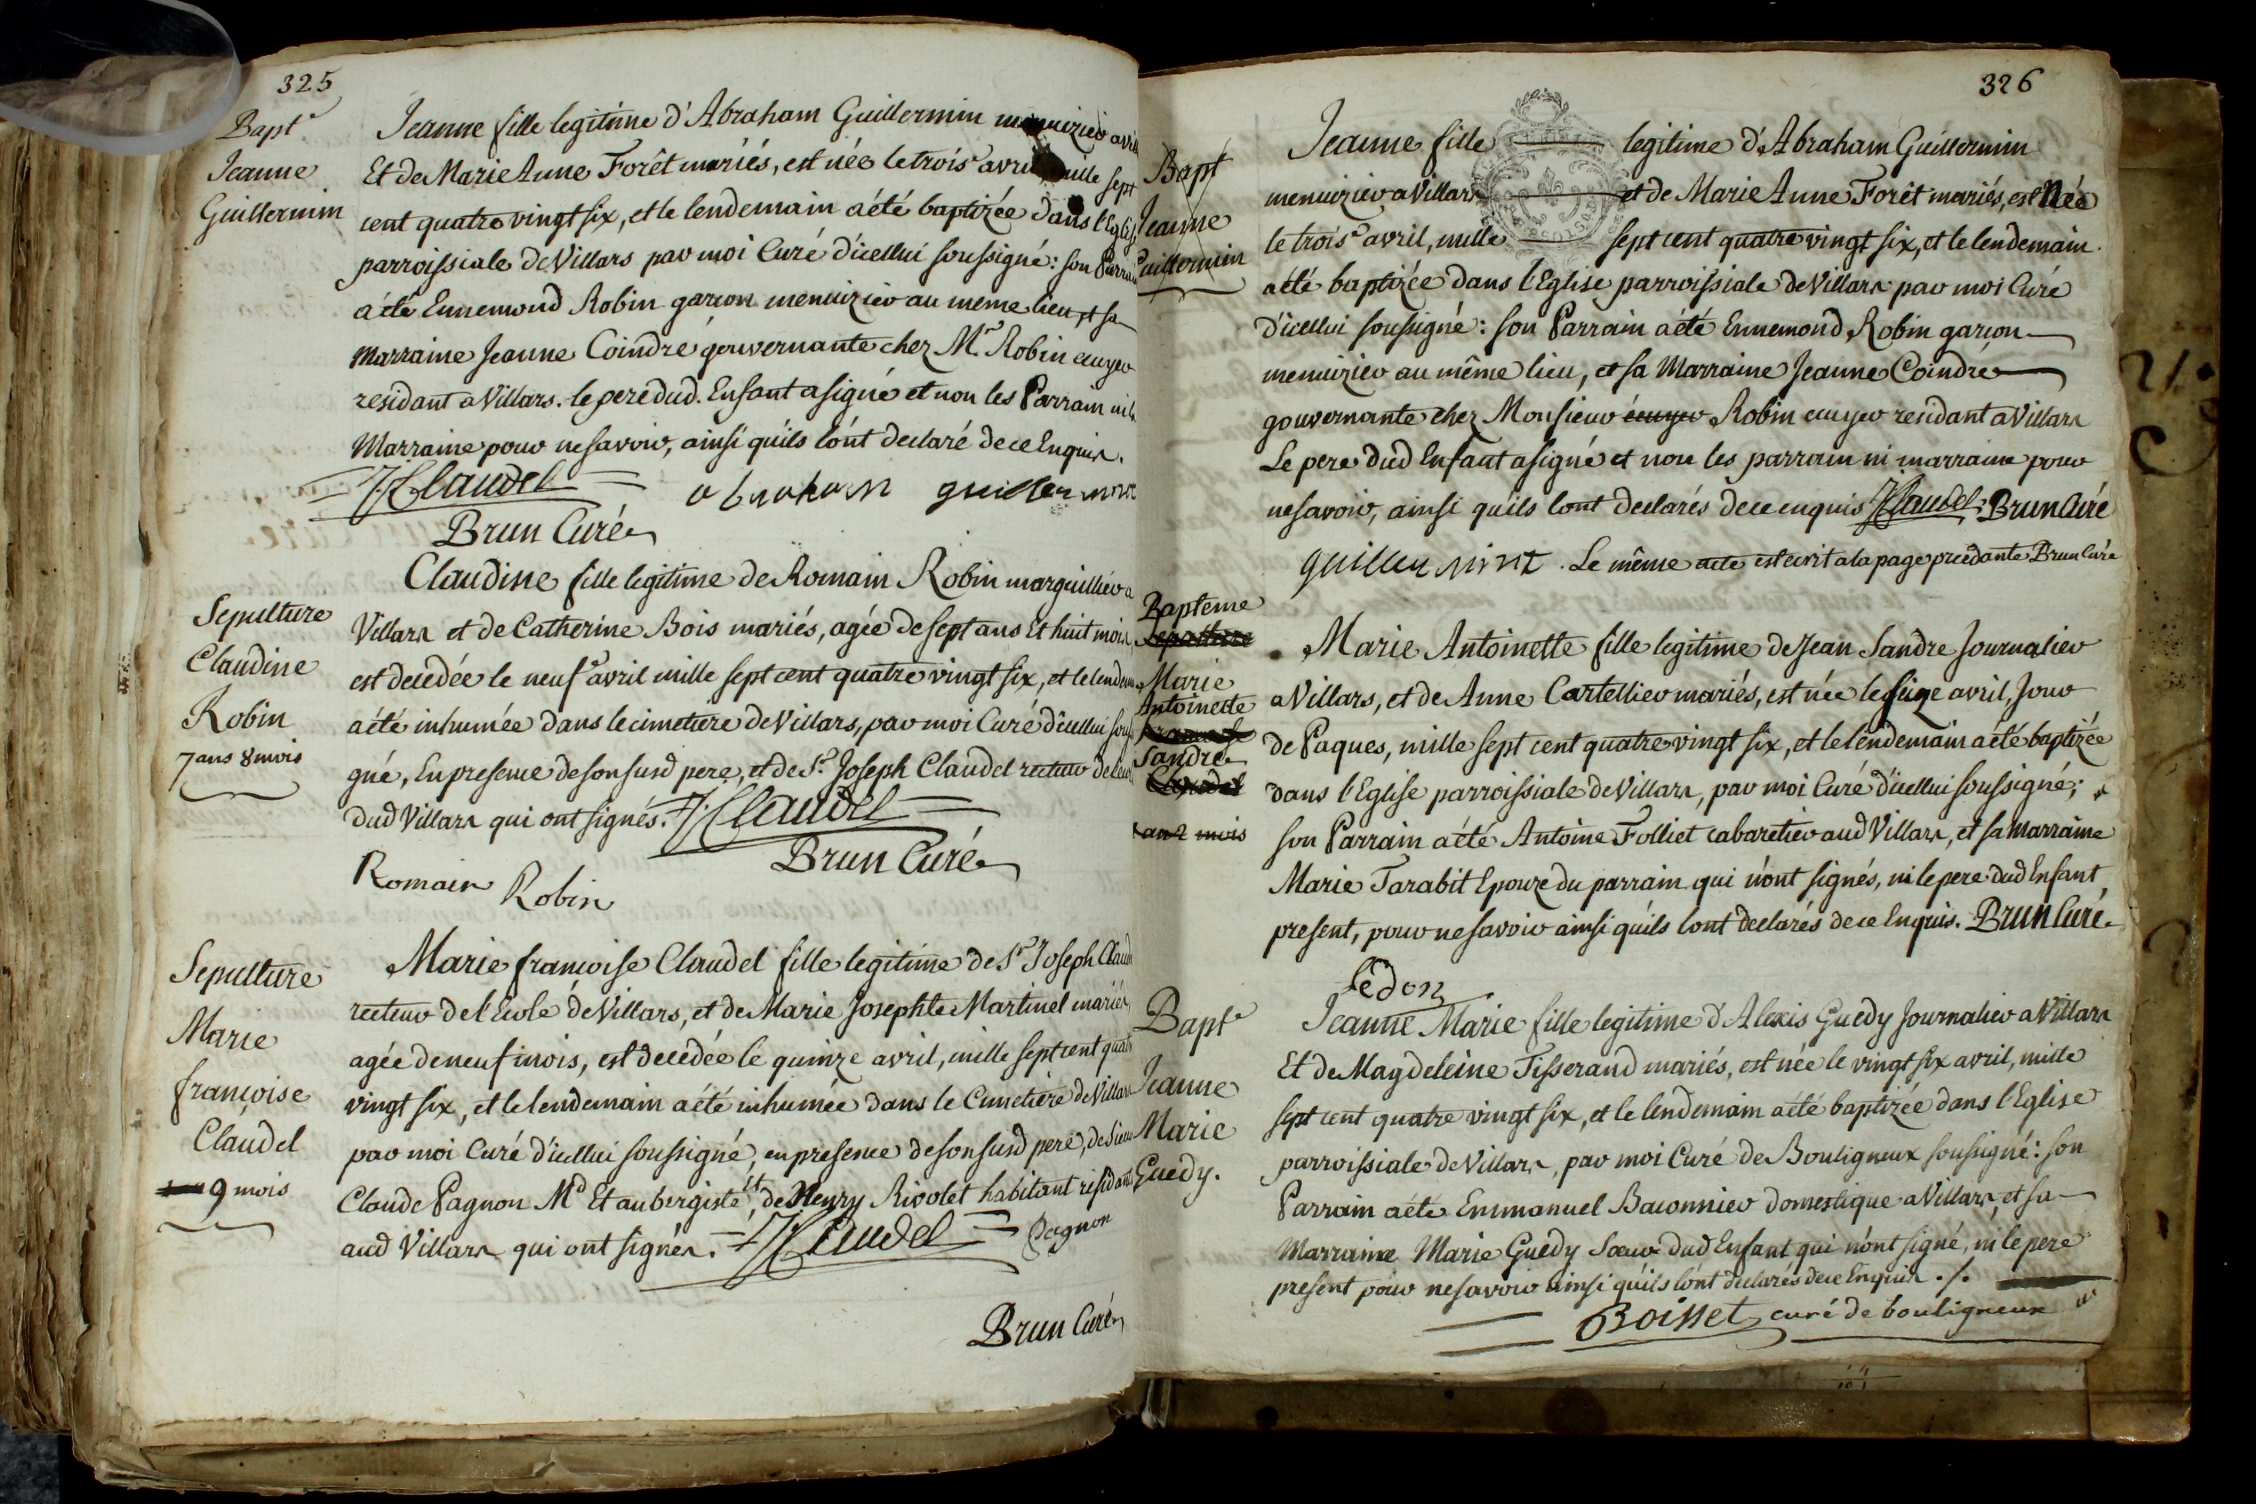 325
Bapt.e
Jeanne
Guillermin
Jeanne fille legitime d'Abraham Guillermin menuizier avill
Et de Marie Anne Forêt mariés, est née le trois.e avril mille sept
cent quatre vingt six, et le lendemain a été baptizée dans l'Eglise
parroissiale de Villars par moi Curé d'icellui soussigné : son Parrain
a été Ennemond Robin garçon menuizier au meme lieu, et sa
Marraine Jeanne Coindré gouvernante chez M.r Robin ecuyer
residant a Villars. le pere dud. Enfant a signé et non les Parrain ni la
Marraine pour ne savoir, ainsi qu'ils l'ont declaré de ce Enquis.
J. Claudel abraham guillermint
Brun Curé
Sepulture
Claudine
Robin
7 ans 8 mois
Claudine fille legitime de Romain Robin marguillier a
Villars et de Catherine Bois mariés, agée de sept ans Et huit mois
est decedée le neuf.e avril mille sept cent quatre vingt six, et le lendem
a été inhumée dans le cimetiere de Villars, par moi Curé d'icellui sousi
gné, En presence de son susd pere, et de S.r Joseph Claudel recteur de
dud Villars qui ont signés. J. Claudel
Brun Curé
Romain Robin
Sepulture
Marie
françoise
Claudel
9 mois
Marie françoise Claudel fille legitime de S.r Joseph Claudel
recteur de l'Ecole de Villars, et de Marie Josephte Martinel mariés,
agée de neuf mois, est decedée le quinze avril, mille sept cent quatre
vingt six, et le lendemain a été inhumée dans le Cimetiere de Villars
par moi Curé d'icellui soussigné, en presence de son susd pere, de Sieur
Claude Pagnon M.d Et aubergiste, Et de Henry Rivolet habitant residant
aud Villars qui ont signés. J. Claudel Pagnon
Brun Curé
326
Bapt
Jeanne
Guillermin
Jeanne fille legitime d'Abraham Guillermin
menuizier a Villars et de Marie Anne Forêt mariés, est Née
le trois.e avril, mille sept cent quatre vingt six, et le lendemain
a été baptizée dans l'Eglise parroissiale de Villars par moi Curé
d'icellui soussigné : son Parrain a été Ennemond Robin garçon
menuizier au même lieu, et sa Marraine Jeanne Coindré
gouvernante chez Monsieur écuyer Robin ecuyer residant a Villars
Le pere dud Enfant a signé et non les parrain ni marraine pour
ne savoir, ainsi qu'ils l'ont declarés de ce enquis J. Claudel. Brun Curé
guillermint. Le même acte est ecrit a la page precedante Brun Curé
Bapteme
Sepulture
Marie
Antoinette
françoise
Sandre
Claudel
1 an 2 mois
Marie Antoinette fille legitime de Jean Sandre Journalier
a Villars, et de Anne Cartellier mariés, est née le seize avril, Jour
de Paques, mille sept cent quatre vingt six, et le lendemain a été baptizée
dans l'Eglise parroissiale de Villars, par moi Curé d'icellui soussigné ;
son Parrain a été Antoine Folliet cabaretier aud Villars, et sa Marraine
Marie Tarabit Epouze du parrain qui n'ont signés, ni le pere dud Enfant
present, pour ne savoir ainsi qu'ils l'ont declarés de ce Enquis. Brun Curé
Bapt.e
Jeanne
Marie
Guedy.
Jeanne Marie fille legitime d'Alexis Guedy Journalier a Villars
Et de Magdeleine Tisserand mariés, est née le vingt six avril, mille
sept cent quatre vingt six, et le lendemain a été baptizée dans l'Eglise
parroissiale de Villars, par moi Curé de Bouligneux soussigné : son
Parrain a été Emmanuel Baconnier domestique a Villars, et sa
Marraine Marie Guedy Soeur dud Enfant qui n'ont signé, ni le pere
present pour ne savoir ainsi qu'ils l'ont declarés de ce Enquis ./.
Boisset curé de bouligneux